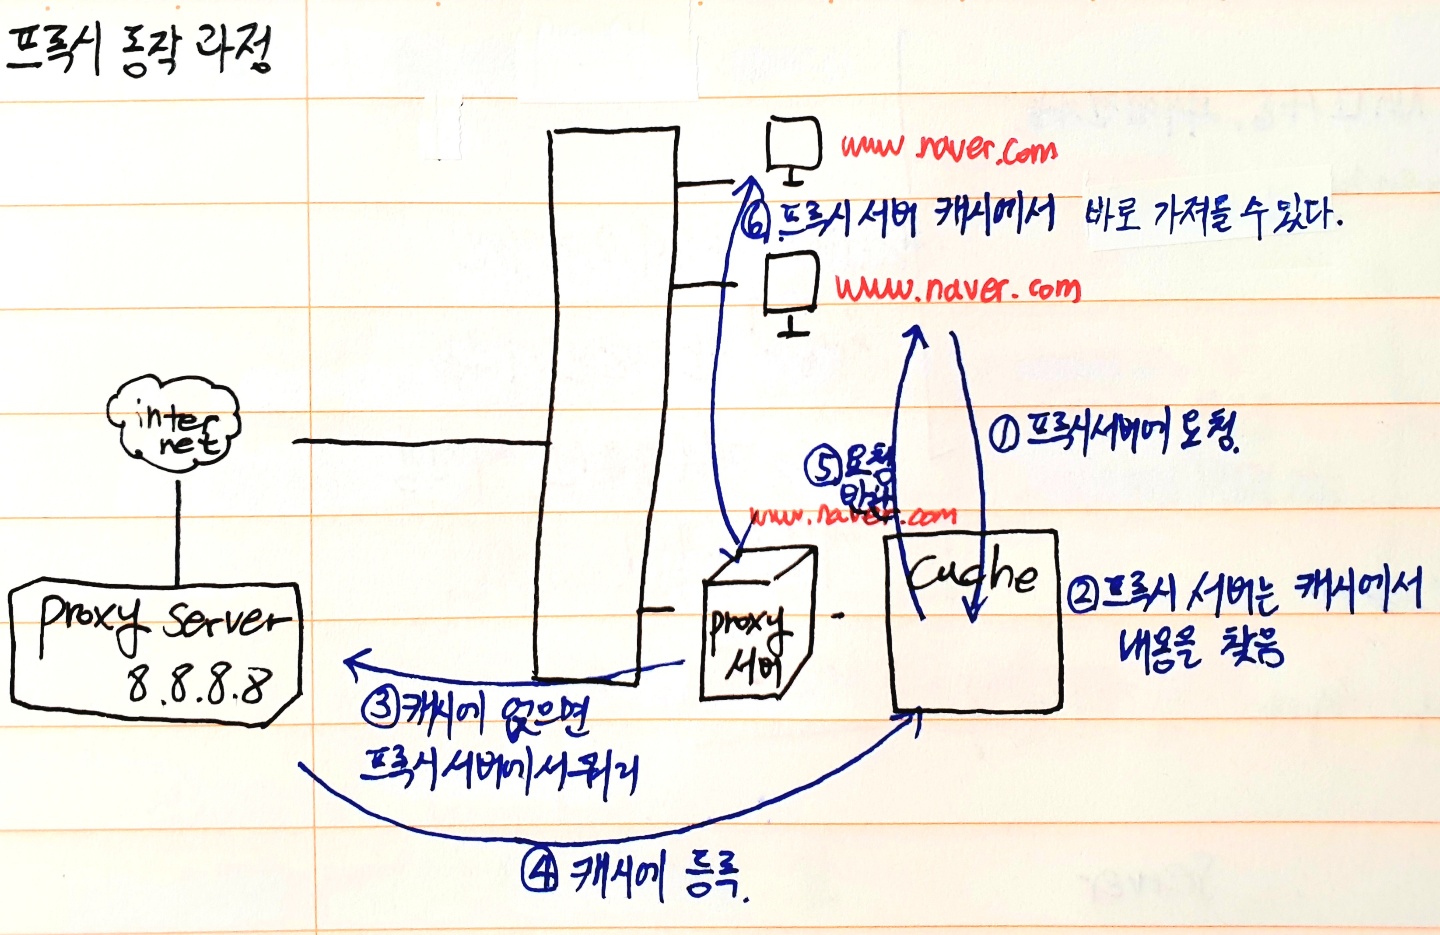 프록시 동작 과정
www naver.com
⑥ 프록시 서버 캐시에서 바로 가져올 수 있다.
www.naver.com
inter
net
① 프록시서버에 요청.
⑤ 요청
www.naver.com
cache
proxy server
8.8.8.8
proxy
서버
② 프록시 서버는 캐시에서
내용을 찾음
③ 캐시에 없으면
프록시 서버에서 쿼리
④ 캐시에 등록.